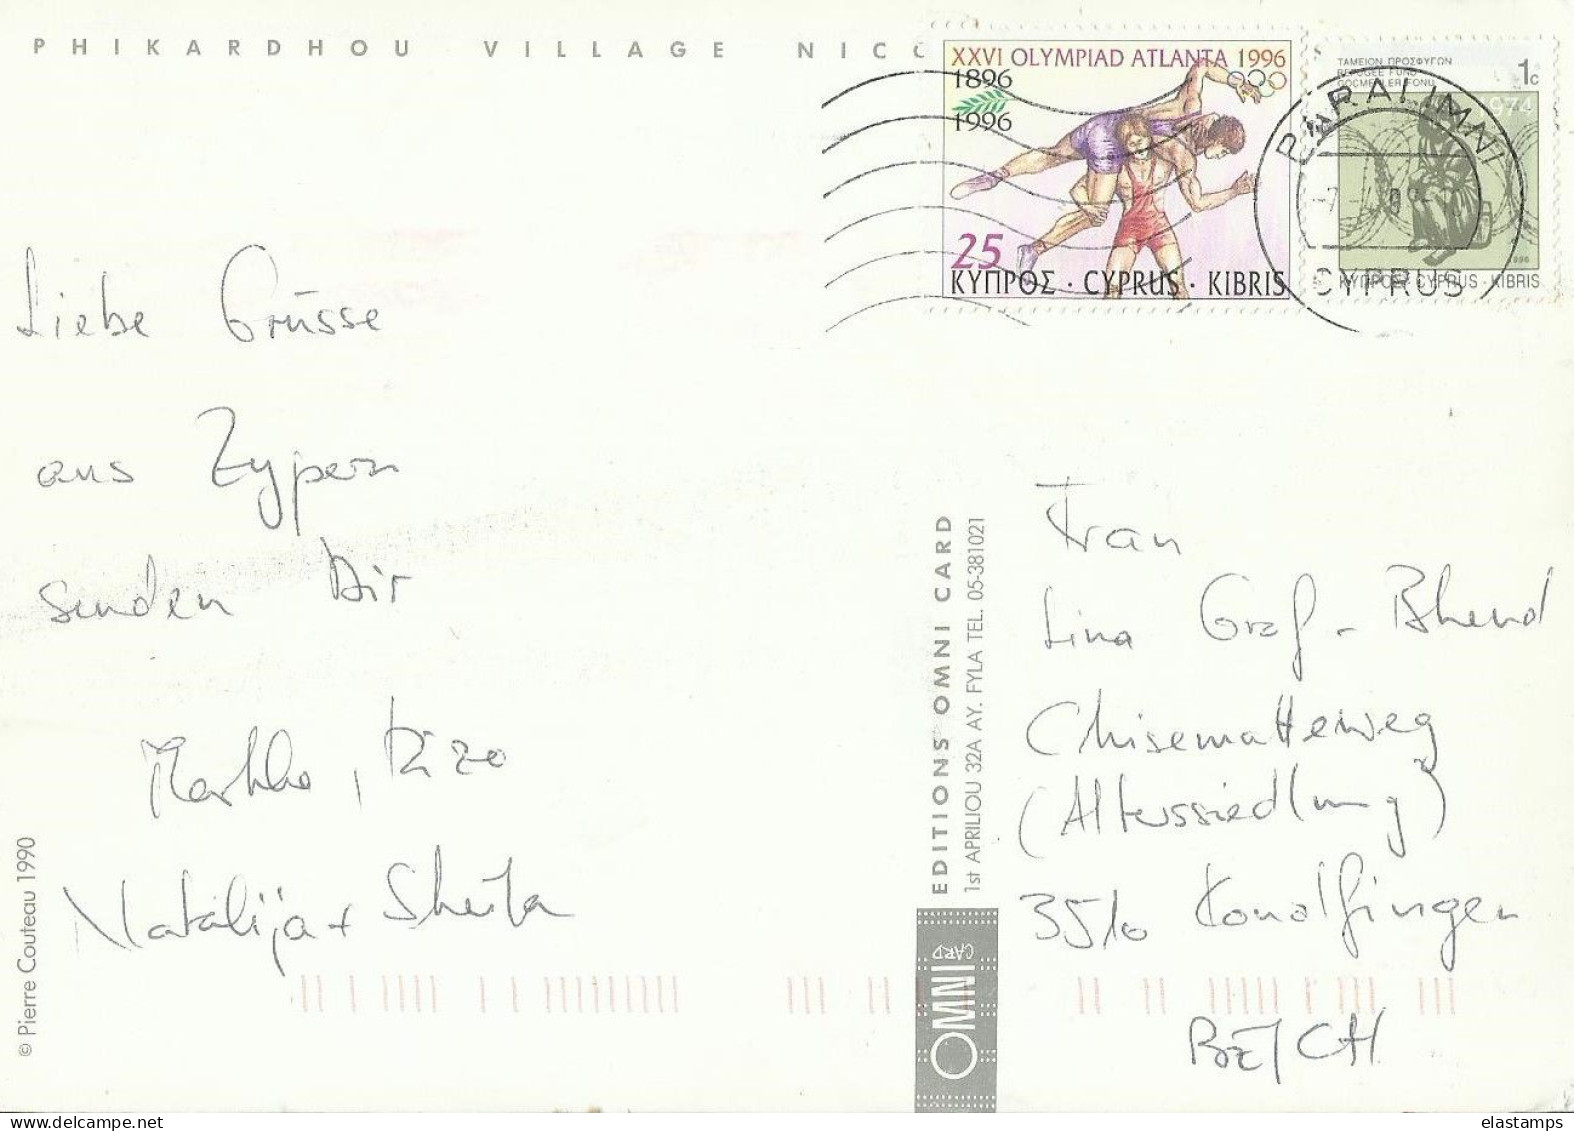 PHIKARDHOU VILLAGE NICO
XXVI OLYMPIAD ATLANTA 1996
1896
1996
25
ΚΥΠΡΟΣ · CYPRUS · KIBRIS
ΤΑΜΕΙΟΝ ΠΡΟΣΦΥΓΩΝ
REFUGEE FUND
GÖÇMENLER FONU
1c
1974
1996
ΚΥΠΡΟΣ · CYPRUS · KIBRIS
PARALIMNI
CYPRUS
Liebe Grüsse
aus Zypern
senden Dir
Rizo
Natalija +
© Pierre Couteau 1990
EDITIONS OMNI CARD
1st APRILIOU 32A AY. FYLA TEL. 05-381021
OMNI CARD
Frau
Lina Graf-
Chisemattweg
(Alterssiedlung)
3510 Konolfingen
BE/CH
elastamps